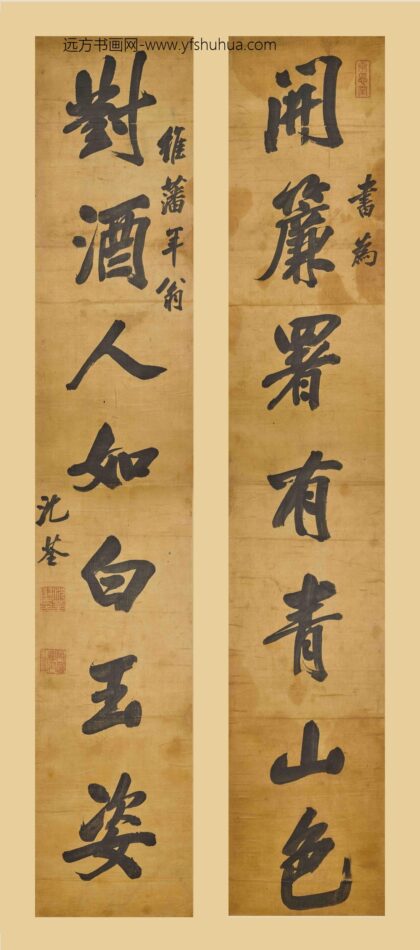 远方书画网-www.yfshuhua.com
開簾署有青山色
書為
維藩年翁
對酒人如白玉姿
沈荃